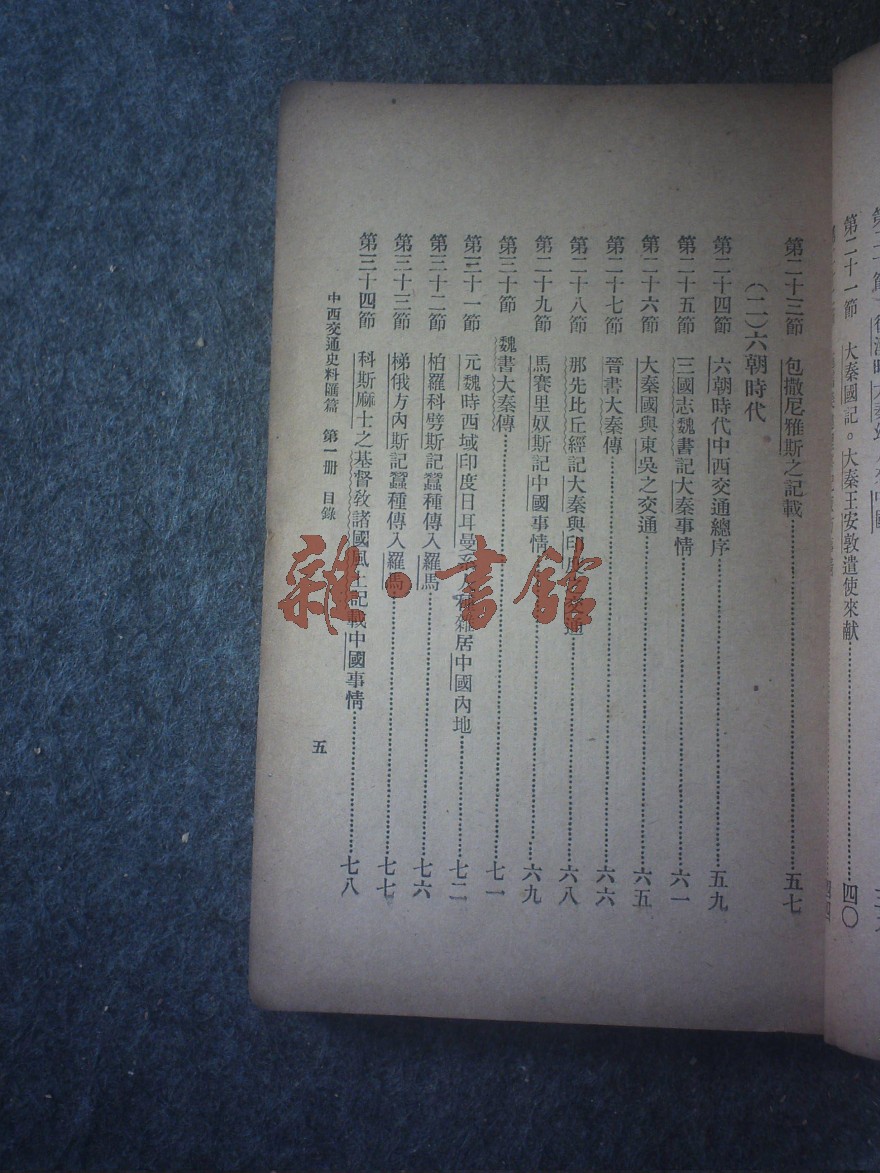 第二十一節　大秦國記。大秦王安敦遣使來献……四〇
第二十三節　包撒尼雅斯之記載……五七
（二）六朝時代
第二十四節　六朝時代中西交通總序……五九
第二十五節　三國志魏書記大秦事情……六一
第二十六節　大秦國與東吳之交通……六五
第二十七節　晉書大秦傳……六六
第二十八節　那先比丘經記大秦與印度交通……六八
第二十九節　馬賽里奴斯記中國事情……六九
第三十節　魏書大秦傳……七一
第三十一節　元魏時西域印度日耳曼系人種雜居中國內地……七二
第三十二節　柏羅科劈斯記蠶種傳入羅馬……七六
第三十三節　梯俄方內斯記蠶種傳入羅馬……七七
第三十四節　科斯麻士之基督敎諸國風土記載中國事情……七八
中西交通史料匯篇　第一册　目錄
五
雜·書館